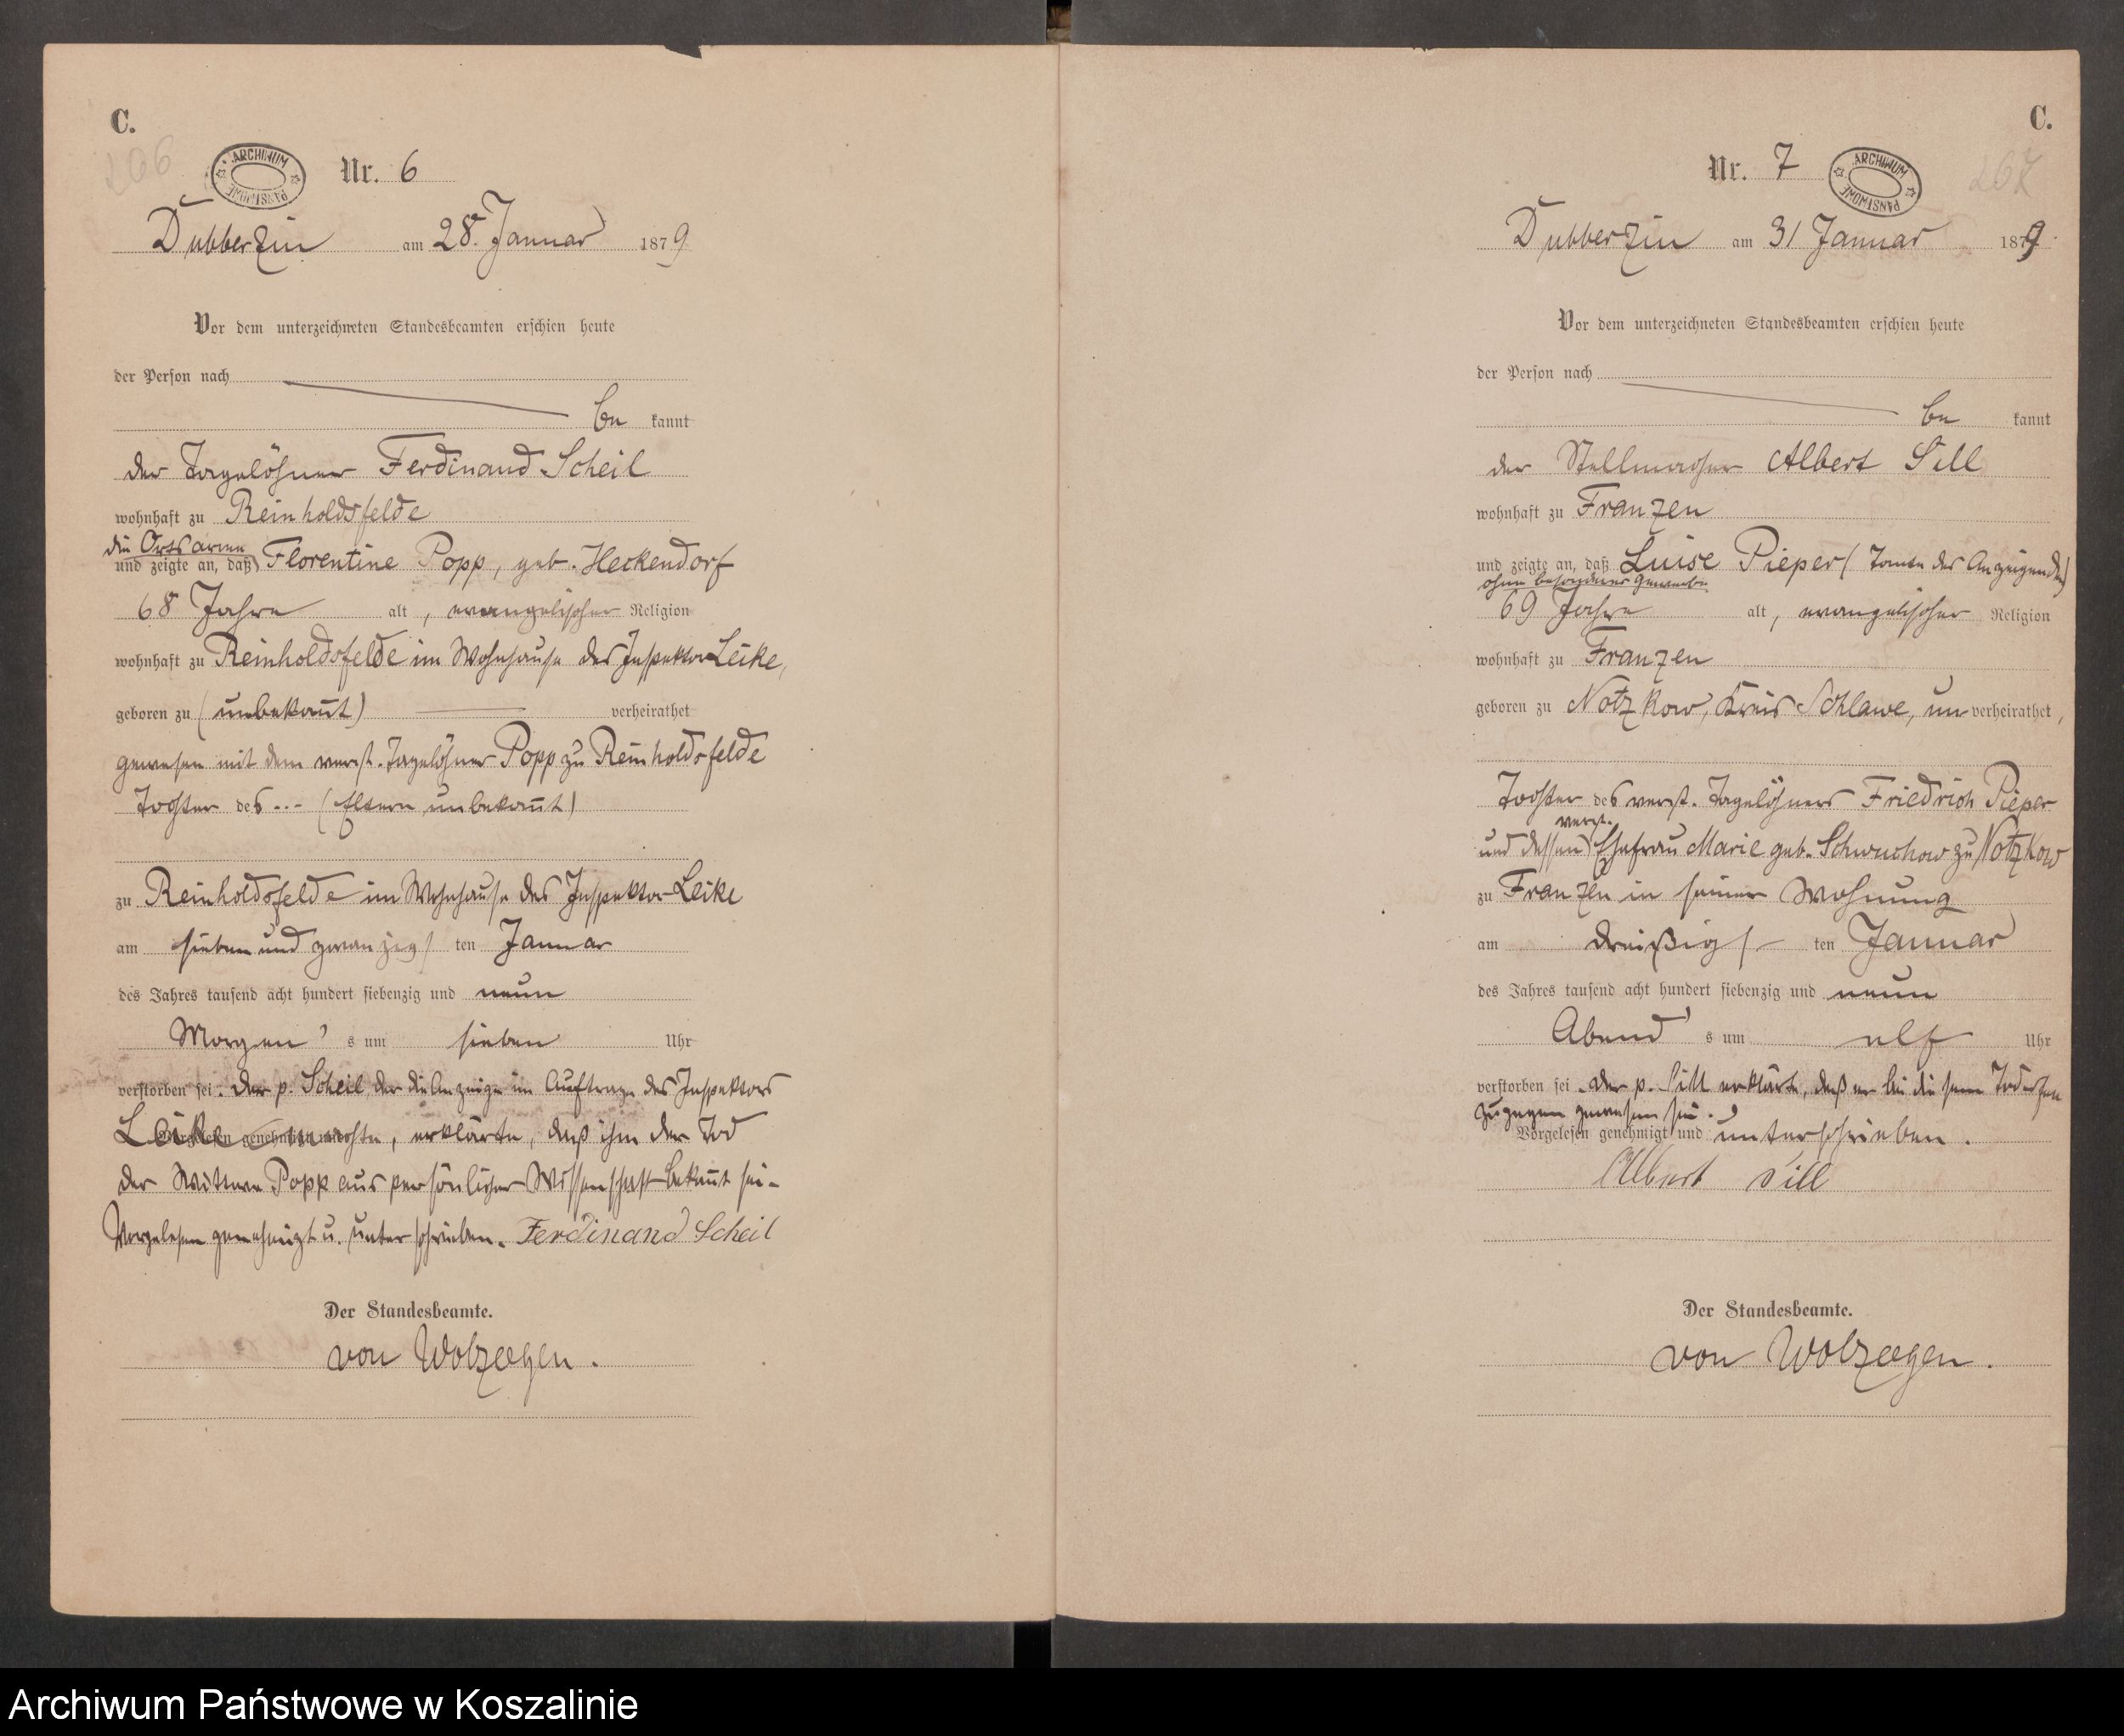 C.
206
ARCHIWUM PAŃSTWOWE
Nr. 6
Dubberzin am 28. Januar 1879
Vor dem unterzeichneten Standesbeamten erschien heute
der Person nach
be kannt
der Tagelöhner Ferdinand Scheil
wohnhaft zu Reinholdsfelde
die Ortsarme
und zeigte an, daß Florentine Popp, geb. Heckendorf
68 Jahre alt, evangelischer Religion
wohnhaft zu Reinholdsfelde im Wohnhause des Inspektor Leike,
geboren zu (unbekan̄t) verheirathet
gewesen mit dem verst. Tagelöhner Popp zu Reinholdsfelde
Tochter des --- (Eltern unbekan̄t)
zu Reinholdsfelde im Wohnhause des Inspektor Leike
am sieben und zwanzigs ten Januar
des Jahres tausend acht hundert siebenzig und neun
Morgen's um sieben Uhr
verstorben sei. Der p. Scheil, der die Anzeige im Auftrage des Inspektors
Vorgelesen genehmigt und
Leike machte, erklärte, daß ihm der Tod
der Wittwe Popp aus persönlicher Wissenschaft bekan̄t sei-
Vorgelesen genehmigt u. unterschrieben. Ferdinand Scheil
Der Standesbeamte.
von Wolzogen.
C.
267
Nr. 7
ARCHIWUM PAŃSTWOWE
Dubberzin am 31 Januar 1879.
Vor dem unterzeichneten Standesbeamten erschien heute
der Person nach
be kannt
der Stellmacher Albert Sill
wohnhaft zu Franzen
und zeigte an, daß Luise Pieper (Tante des Anzeigenden)
ohne besonderes Gewerbe
69 Jahre alt, evangelischer Religion
wohnhaft zu Franzen
geboren zu Notzkow, Kreis Schlawe, un verheirathet,
Tochter des verst. Tagelöhners Friedrich Pieper
verst.
und dessen Ehefrau Marie geb. Schwuchow zu Notzkow
zu Franzen in seiner Wohnung
am dreißigs ten Januar
des Jahres tausend acht hundert siebenzig und neun
Abend's um elf Uhr
verstorben sei. Der p. Sill erklärte, daß er bei diesem Tode
zugegen gewesen sei.
Vorgelesen genehmigt und unterschrieben.
Albert Sill
Der Standesbeamte.
von Wolzogen.
Archiwum Państwowe w Koszalinie